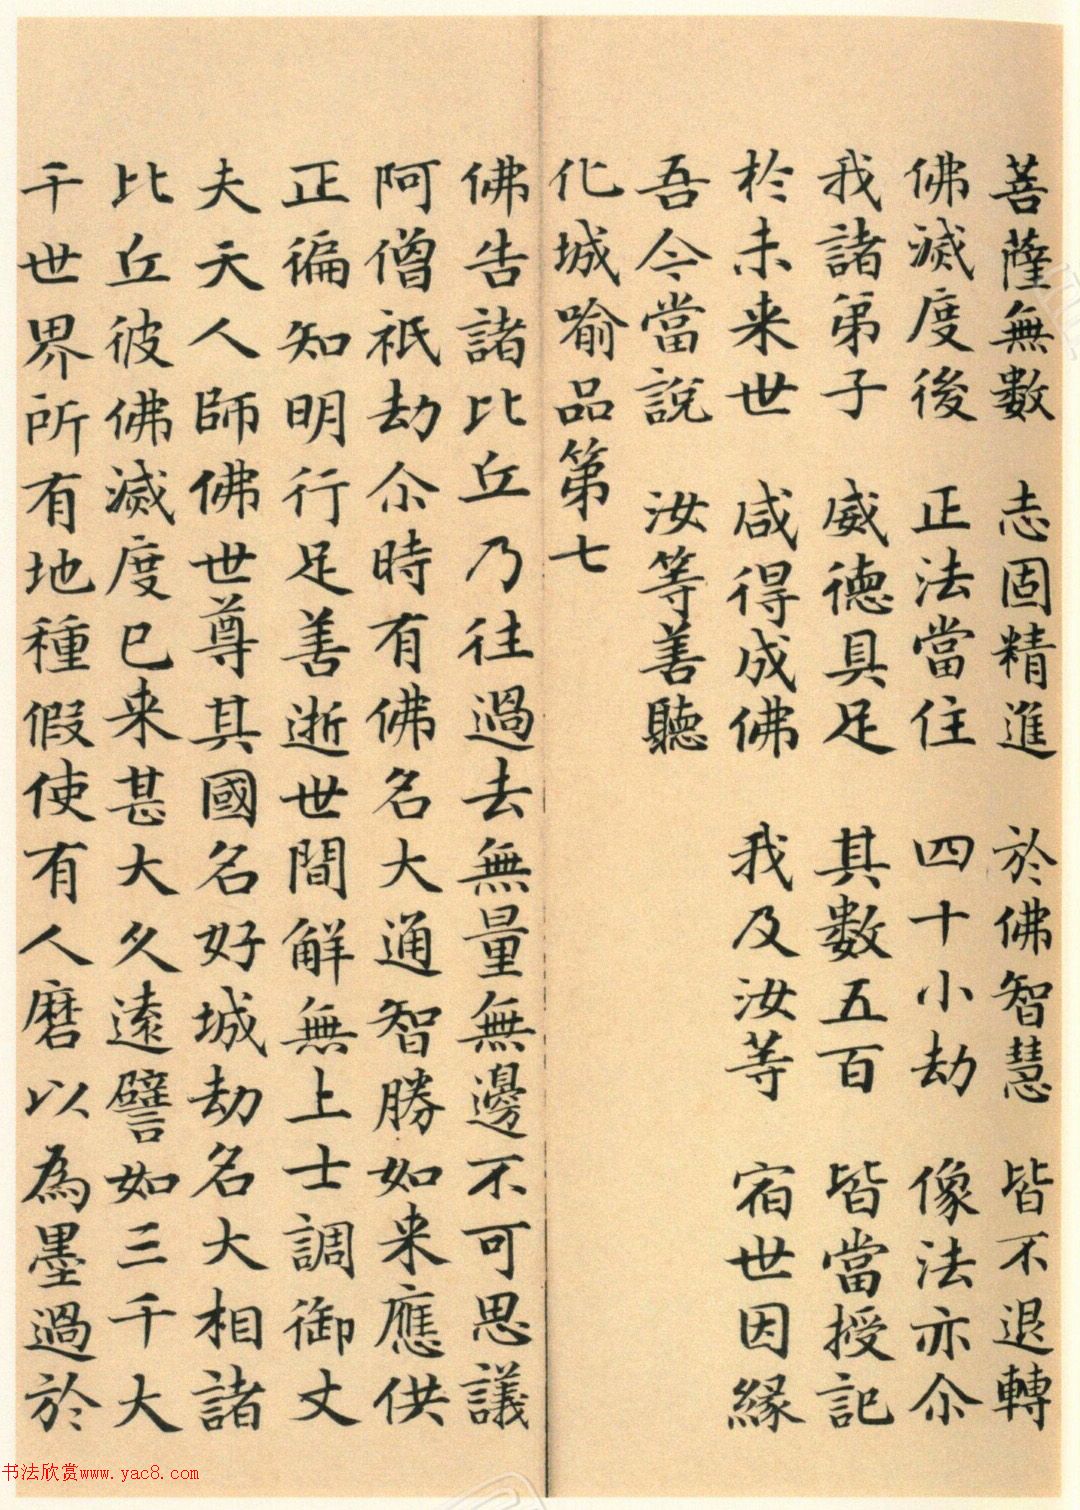 菩薩無數 志固精進 於佛智慧 皆不退轉
佛滅度後 正法當住 四十小劫 像法亦尒
我諸弟子 威德具足 其數五百 皆當授記
於未来世 咸得成佛 我及汝等 宿世因緣
吾今當說 汝等善聽
化城喻品第七
佛告諸比丘乃往過去無量無邊不可思議
阿僧祇劫尒時有佛名大通智勝如来應供
正徧知明行足善逝世間解無上士調御丈
夫天人師佛世尊其國名好城劫名大相諸
比丘彼佛滅度已来甚大久遠譬如三千大
千世界所有地種假使有人磨以為墨過於
书法欣赏www.yac8.com